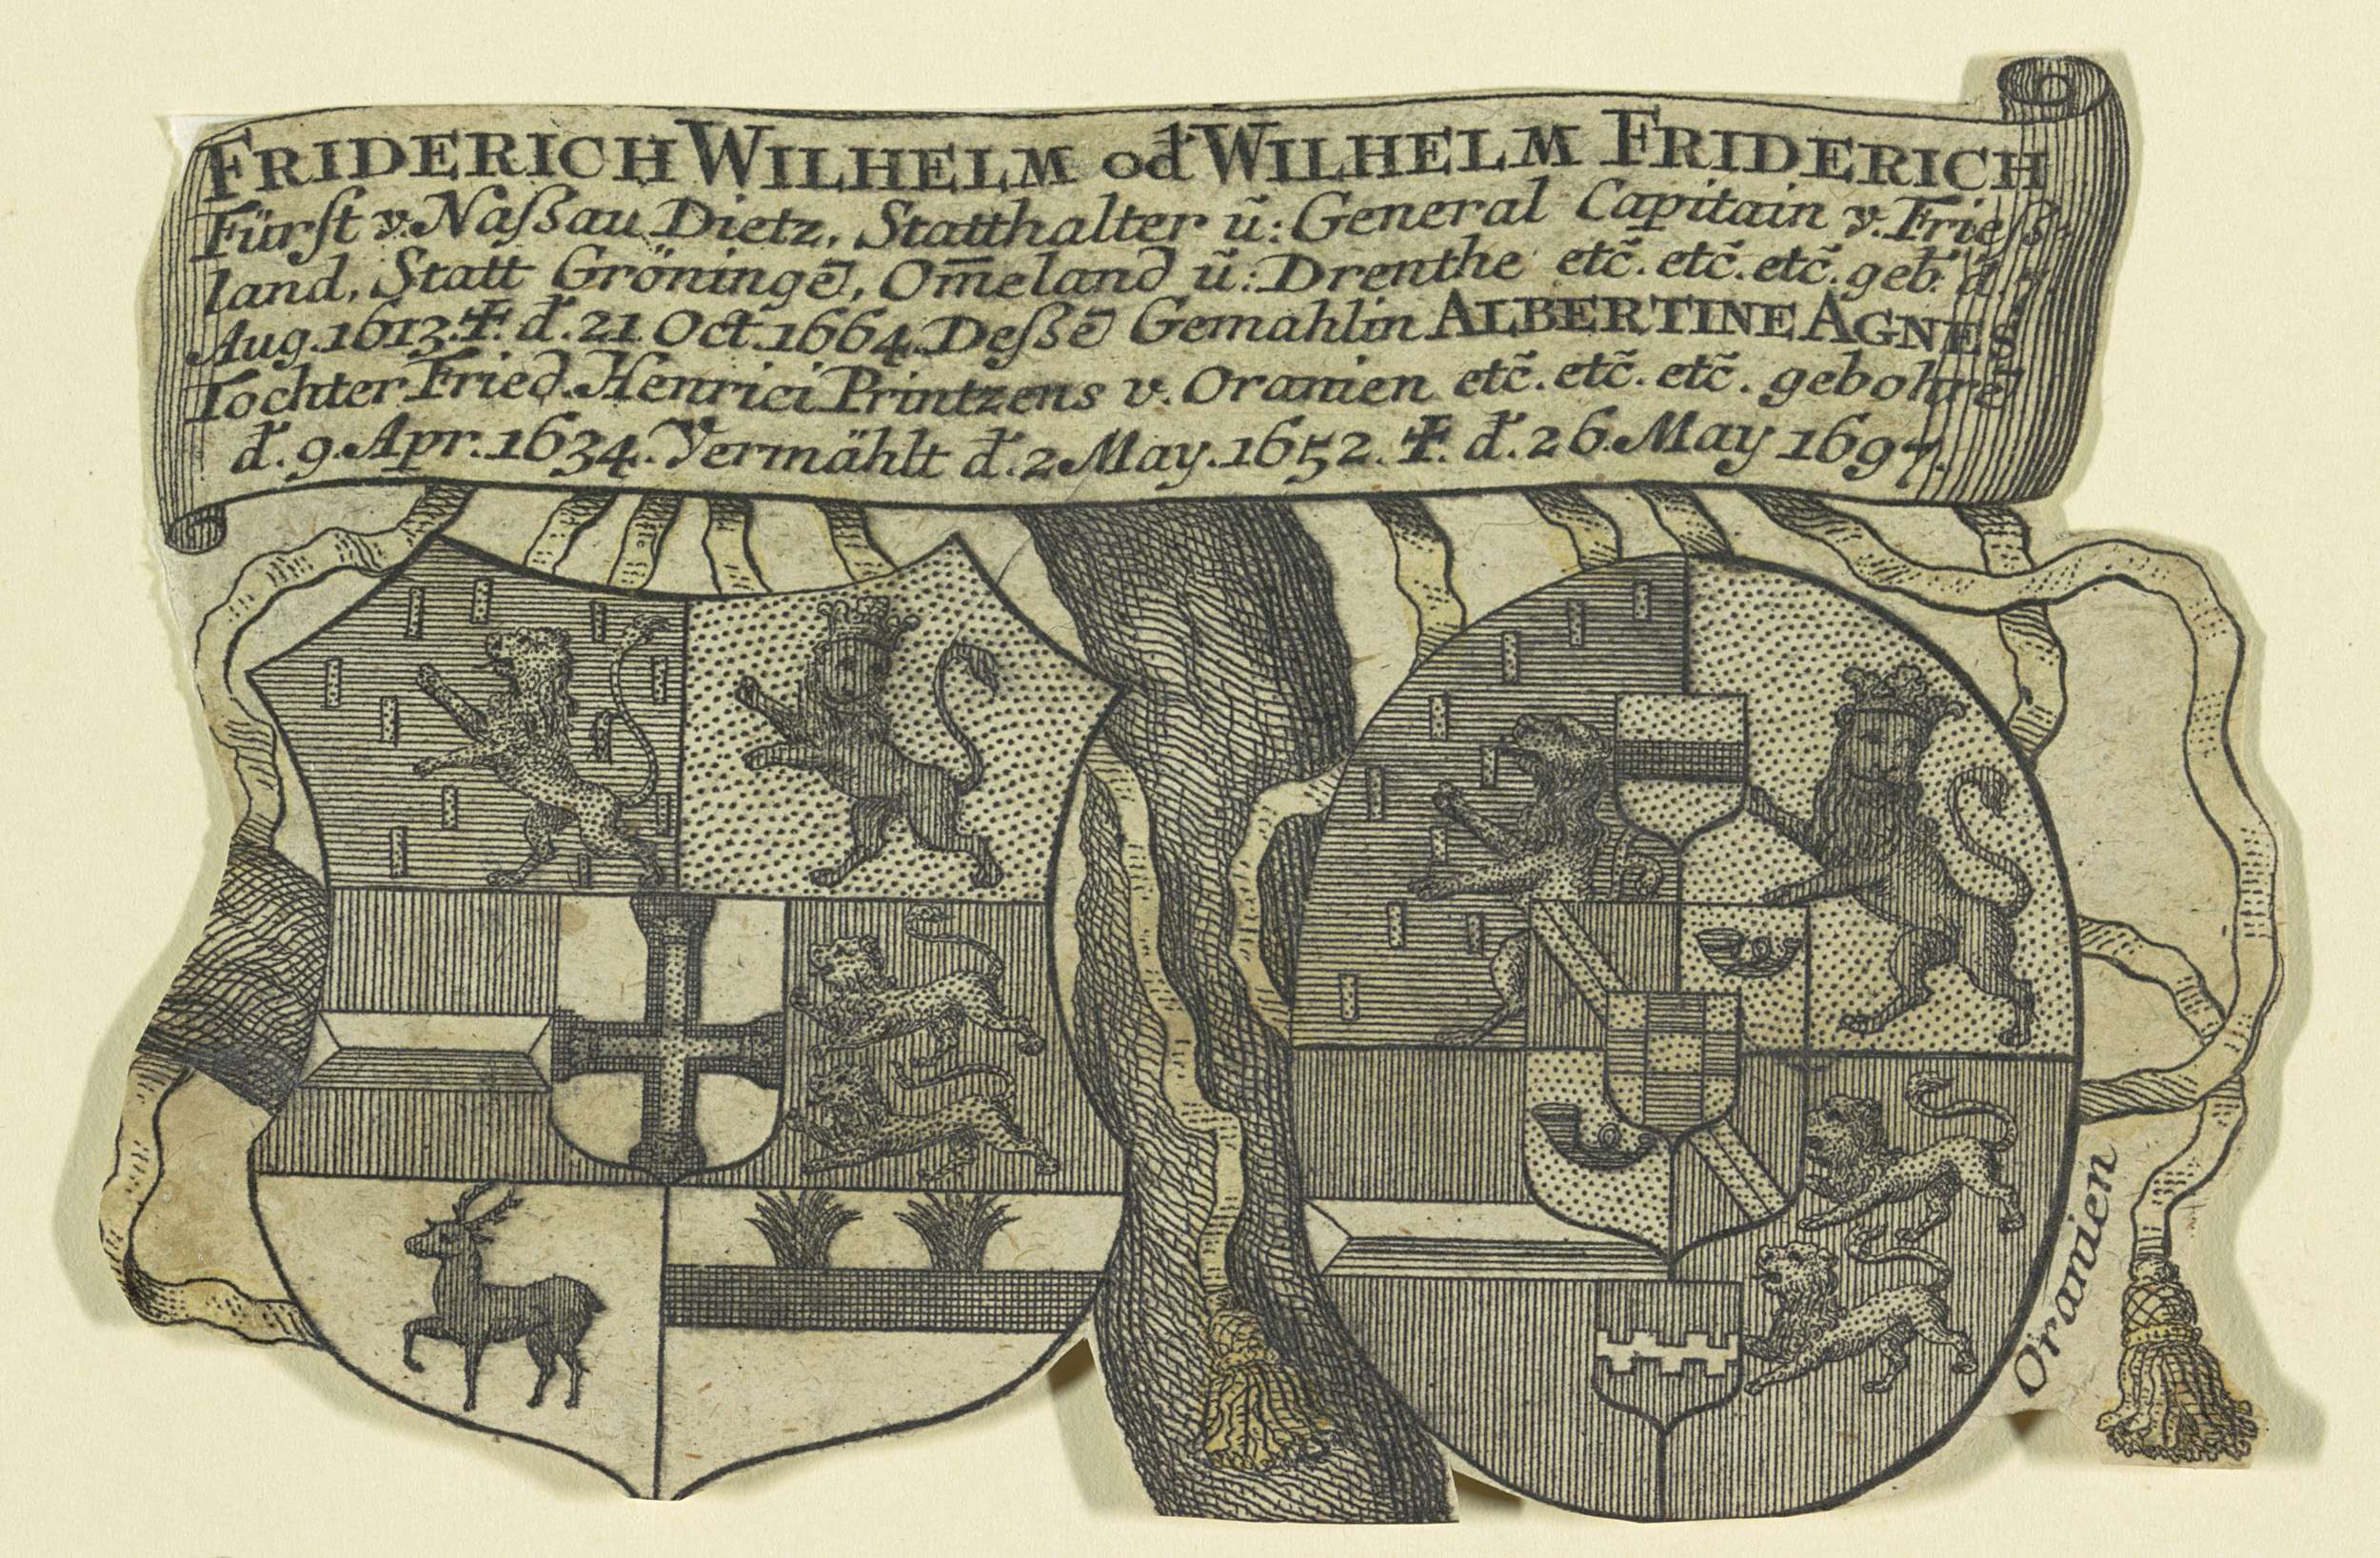 FRIDERICH WILHELM od̃ WILHELM FRIDERICH
Fürſt v. Naſsau Dietz, Statthalter ũ: General Capitain v. Frieſs-
land, Statt Gröningẽ, Om̄eland ũ: Drenthe etc̃. etc̃. etc̃. geb. d̃. 7.
Aug. 1613. ✝. d̃. 21. Oct. 1664. Deſsẽ Gemahlin ALBERTINE AGNES
Tochter Fried. Henrici Printzens v. Oranien etc̃. etc̃. etc̃. gebohrẽ
d̃. 9. Apr. 1634. Vermählt d̃. 2 May. 1652. ✝. d̃. 26. May 1697.
Oranien